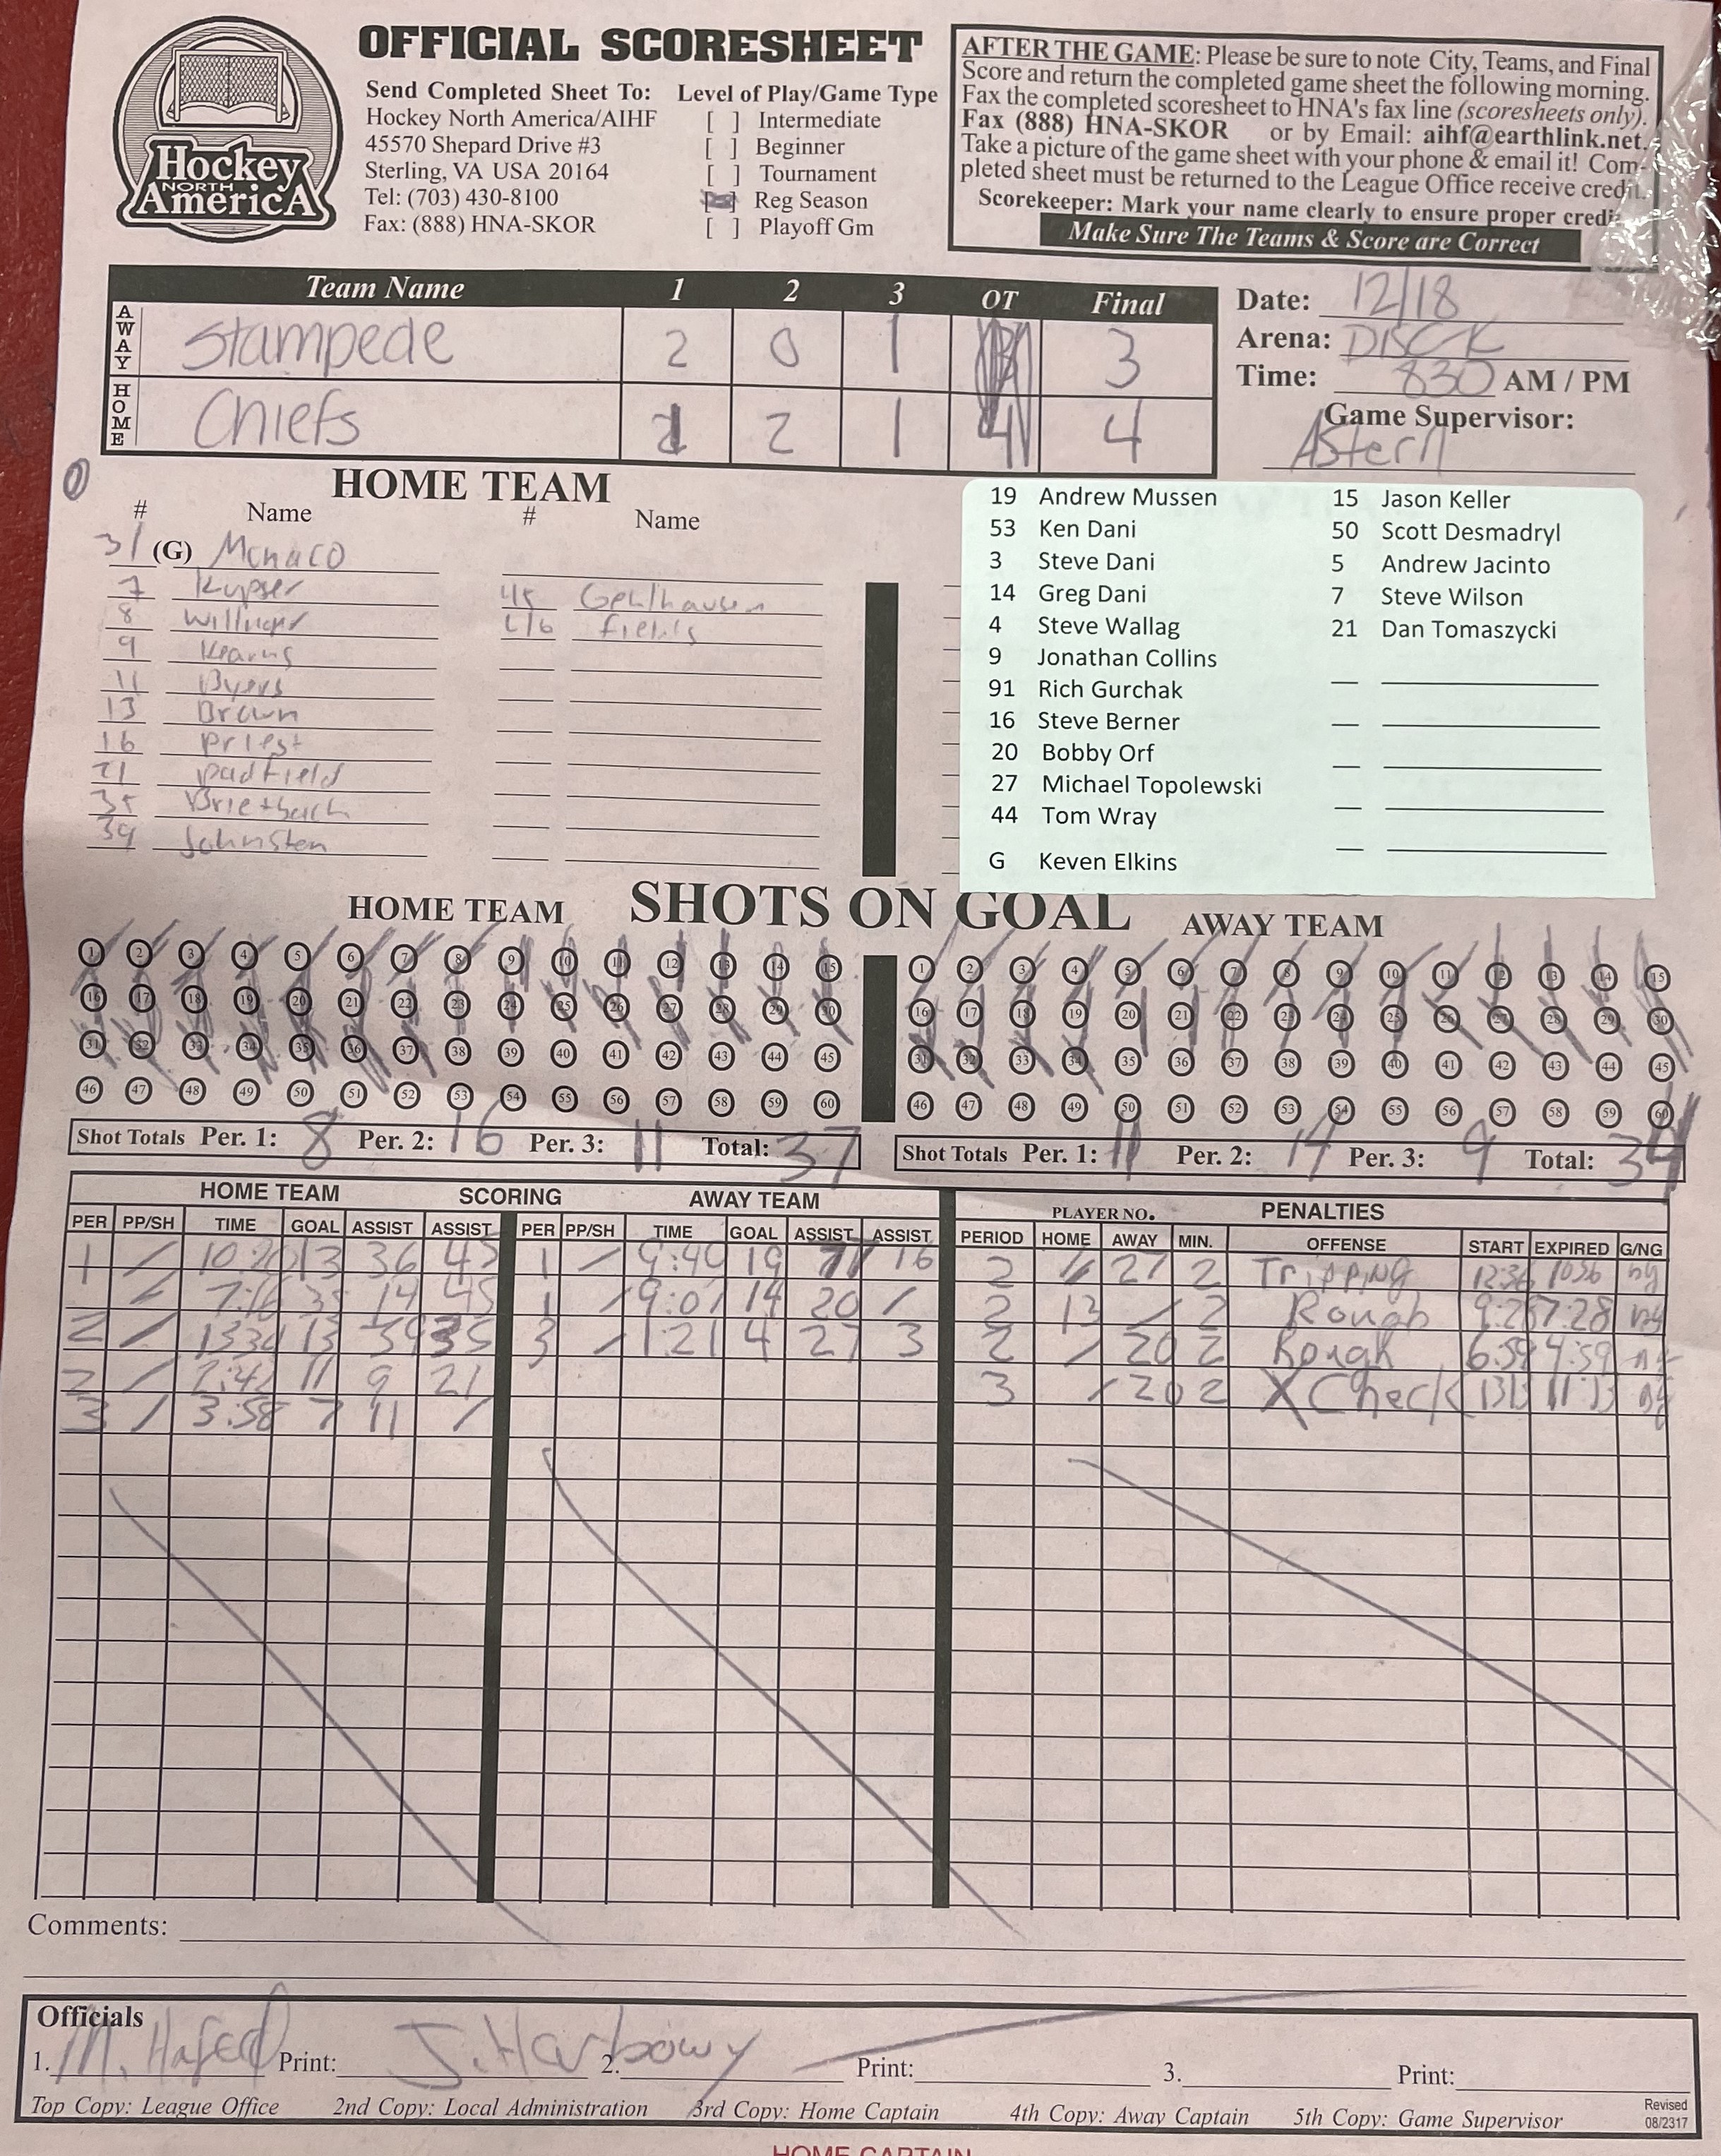 Hockey
NORTH
AmericA
OFFICIAL SCORESHEET
Send Completed Sheet To:
Hockey North America/AIHF
45570 Shepard Drive #3
Sterling, VA USA 20164
Tel: (703) 430-8100
Fax: (888) HNA-SKOR
Level of Play/Game Type
[ ] Intermediate
[ ] Beginner
[ ] Tournament
[ ] Reg Season
[ ] Playoff Gm
AFTER THE GAME: Please be sure to note City, Teams, and Final
Score and return the completed game sheet the following morning.
Fax the completed scoresheet to HNA's fax line (scoresheets only).
Fax (888) HNA-SKOR or by Email: aihf@earthlink.net.
Take a picture of the game sheet with your phone & email it! Com-
pleted sheet must be returned to the League Office receive credit.
Scorekeeper: Mark your name clearly to ensure proper credi
Make Sure The Teams & Score are Correct
Team Name 1 2 3 OT Final
AWAY Stampede 2 0 1 3
HOME Chiefs 2 1 4
Date: 12/18
Arena: DISCK
Time: 830 AM / PM
Game Supervisor:
AStern
HOME TEAM
# Name # Name
31 (G) Monaco
7 Kupser 45 Gehlhausen
8 Willner 46 Fields
9 Kearns
11 Byers
13 Brown
16 Priest
21 Padfield
35 Brietbach
39 Johnston
19 Andrew Mussen 15 Jason Keller
53 Ken Dani 50 Scott Desmadryl
3 Steve Dani 5 Andrew Jacinto
14 Greg Dani 7 Steve Wilson
4 Steve Wallag 21 Dan Tomaszycki
9 Jonathan Collins
91 Rich Gurchak
16 Steve Berner
20 Bobby Orf
27 Michael Topolewski
44 Tom Wray
G Keven Elkins
HOME TEAM SHOTS ON GOAL AWAY TEAM
1 2 3 4 5 6 7 8 9 10 11 12 13 14 15 1 2 3 4 5 6 7 8 9 10 11 12 13 14 15
16 17 18 19 20 21 22 23 24 25 26 27 28 29 30 16 17 18 19 20 21 22 23 24 25 26 27 28 29 30
31 32 33 34 35 36 37 38 39 40 41 42 43 44 45 31 32 33 34 35 36 37 38 39 40 41 42 43 44 45
46 47 48 49 50 51 52 53 54 55 56 57 58 59 60 46 47 48 49 50 51 52 53 54 55 56 57 58 59 60
Shot Totals Per. 1: 8 Per. 2: 16 Per. 3: 11 Total: 37 Shot Totals Per. 1: 11 Per. 2: 14 Per. 3: 9 Total: 34
HOME TEAM SCORING AWAY TEAM PLAYER NO. PENALTIES
PER PP/SH TIME GOAL ASSIST ASSIST PER PP/SH TIME GOAL ASSIST ASSIST PERIOD HOME AWAY MIN. OFFENSE START EXPIRED G/NG
1 / 10:20 13 36 45 1 / 9:40 19 16 2 / 27 2 Tripping 12:36 1036 ng
/ 7:16 35 14 45 1 / 9:01 14 20 / 2 13 / 2 Rough 9:28 7:28 ng
2 / 1334 13 39 35 3 / 1:21 4 27 3 2 / 20 2 Rough 6:59 4:59
2 / 2:42 11 9 21 3 / 20 2 XCheck 1313 11:13 ng
3 / 3:58 7 11 /
Comments:
Officials
1. M. Hafed Print: J. Harbowy 2. Print: 3. Print:
Top Copy: League Office 2nd Copy: Local Administration 3rd Copy: Home Captain 4th Copy: Away Captain 5th Copy: Game Supervisor
Revised
08/2317
HOME CAPTAIN